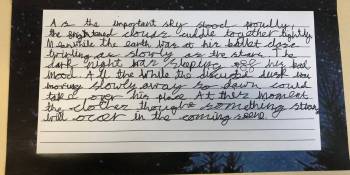 As the important sky stood proudly,
the frightened clouds cuddle together tightly
Meanwhile the earth was at his ballet class
twirling as slowly as the stars. The
dark night was sleeping off his bad
mood. All the while the disgusted dusk was
moving slowly away so dawn could
take over his place. At this moment
the clotter thought something strange
will occer in the coming